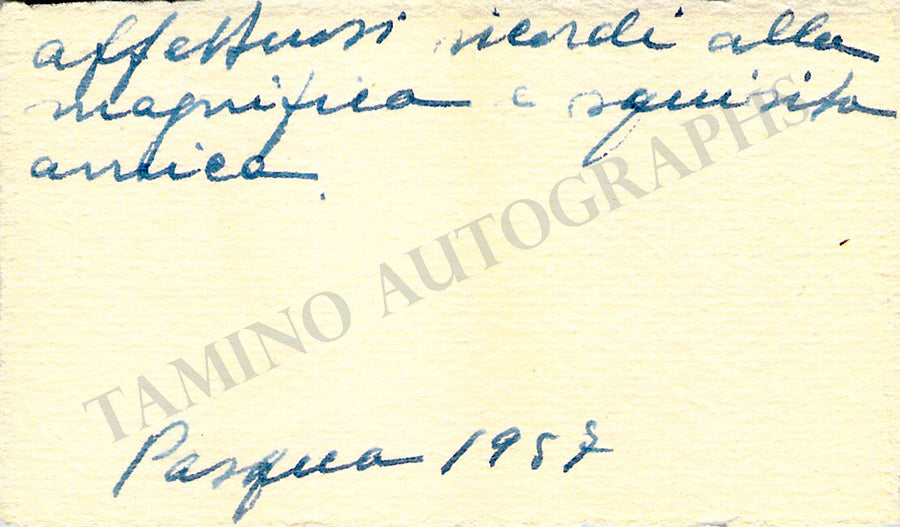 affettuosi ricordi alla
magnifica e squisita
amica.
TAMINO AUTOGRAPHS
Pasqua 1957